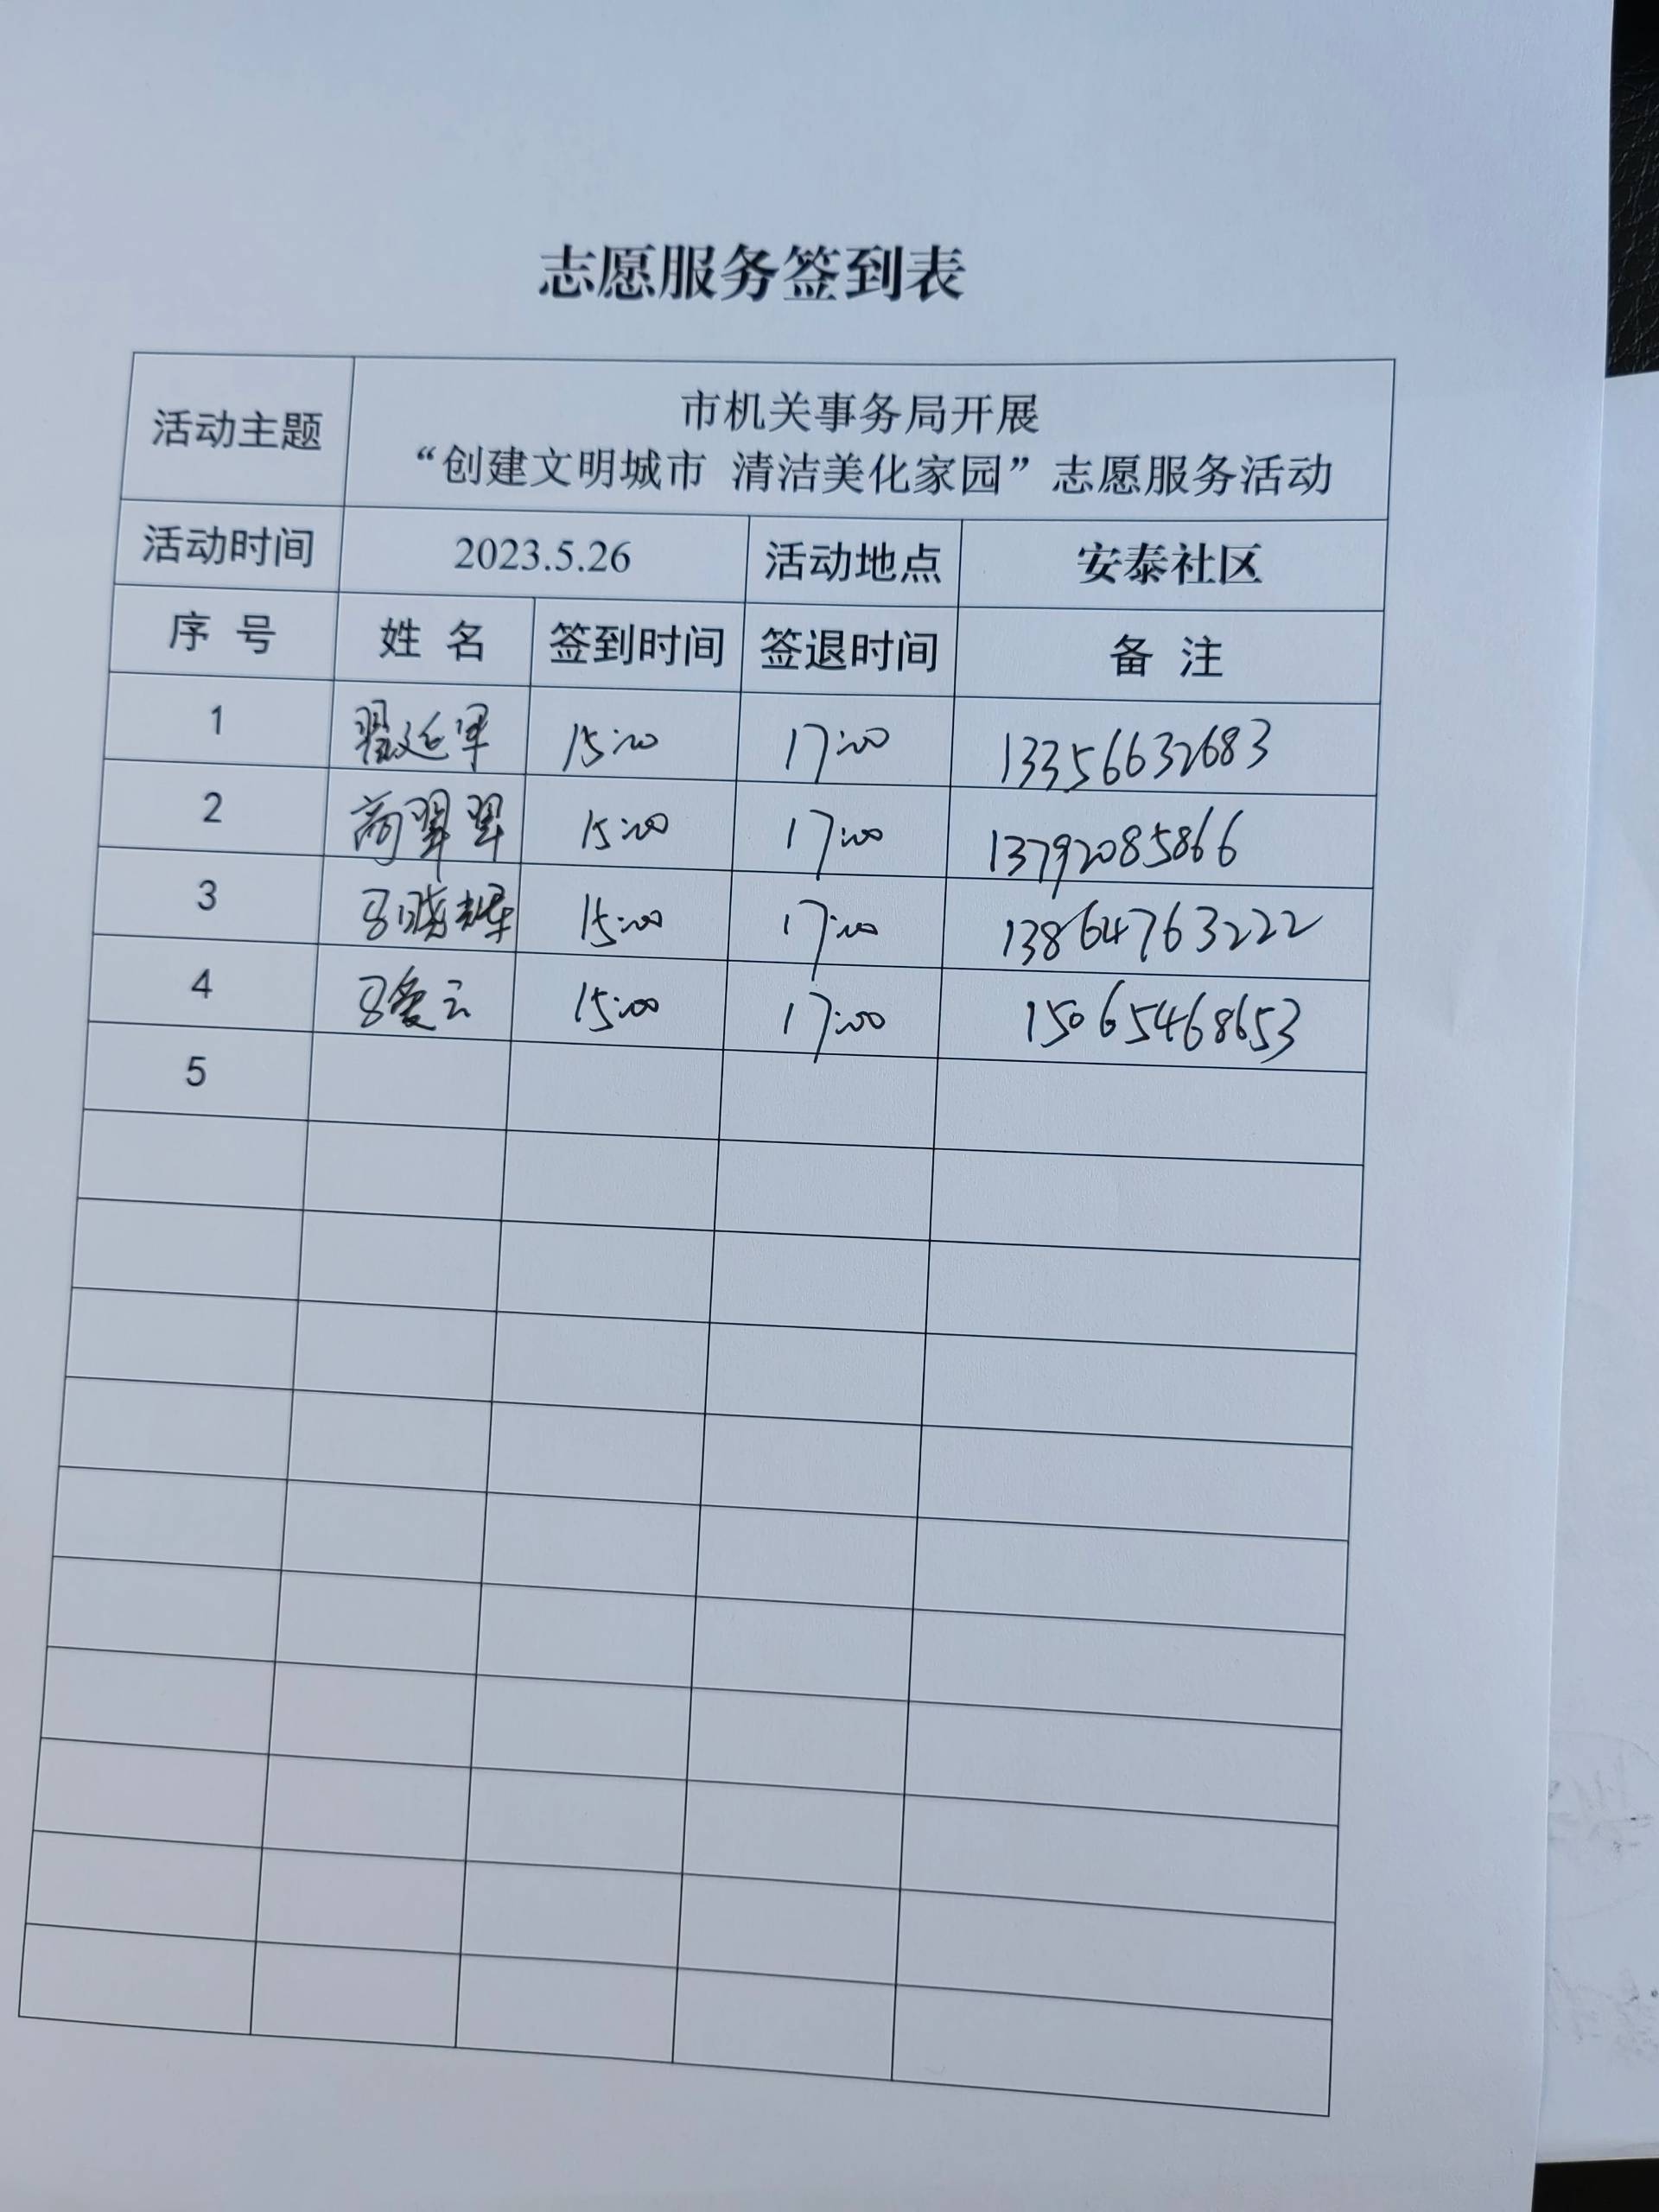 志愿服务签到表
活动主题
市机关事务局开展
“创建文明城市 清洁美化家园”志愿服务活动
活动时间 2023.5.26 活动地点 安泰社区
序号 姓名 签到时间 签退时间 备注
1 翟延军 15:00 17:00 13356632683
2 商翠翠 15:00 17:00 13792085866
3 马晓耀 15:00 17:00 13864763222
4 马爱云 15:00 17:00 15065468653
5